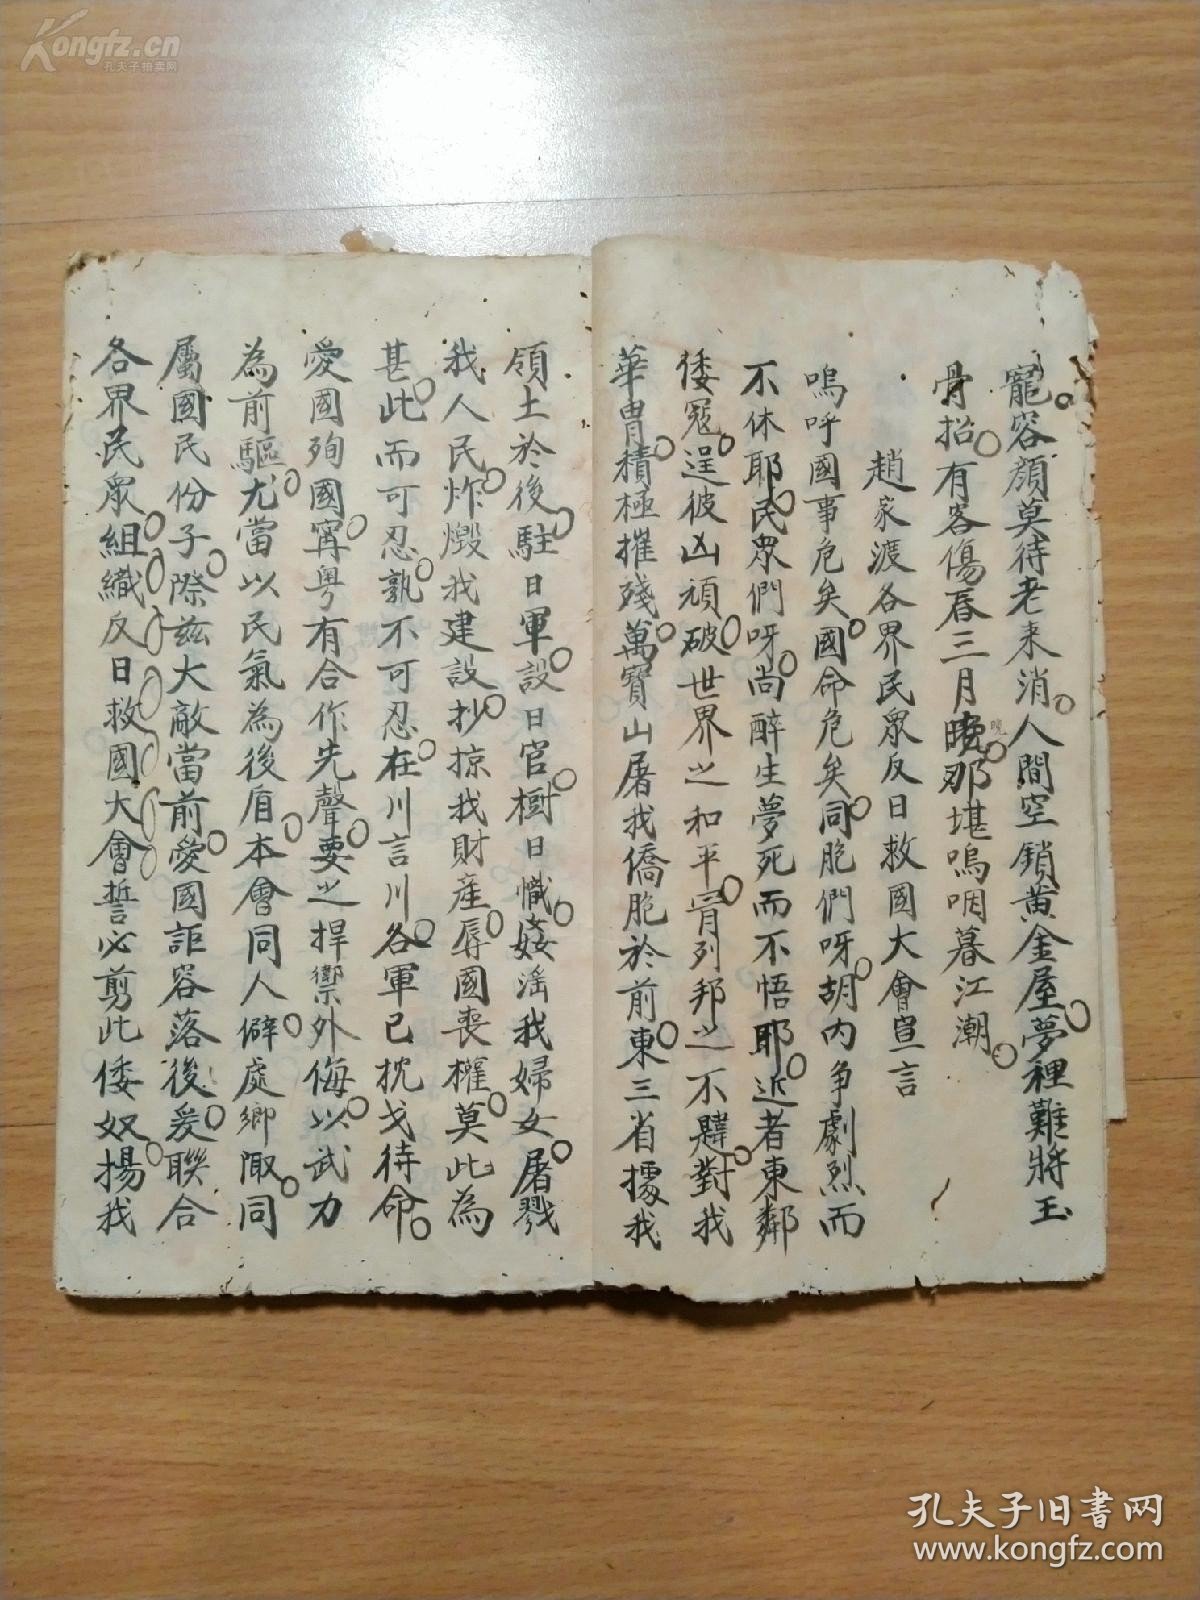 寵容顏莫待老来消人間空鎖黃金屋夢裡難將玉
骨招有客傷春三月晚那堪嗚咽暮江潮
趙家渡各界民眾反日救國大會宣言
嗚呼國事危矣國命危矣同胞們呀胡內争劇烈而
不休耶民眾們呀尚醉生夢死而不悟耶近者東鄰
倭冦逞彼凶頑破世界之和平冐列邦之不韙對我
華胄積極摧殘萬寶山屠我僑胞於前東三省擾我
領土於後駐日軍設日官樹日幟姦淫我婦女屠戮
我人民炸燬我建設抄掠我財產辱國喪權莫此為
甚此而可忍孰不可忍在川言川各軍已枕戈待命
愛國殉國甯粤有合作先聲要之捍禦外侮以武力
為前驅尤當以民氣為後盾本會同人僻處鄉陬同
屬國民份子際茲大敵當前愛國詎容落後爰聯合
各界民眾組織反日救國大會誓必剪此倭奴揚我
Kongfz.cn
孔夫子拍卖网
孔夫子旧书网
www.kongfz.com